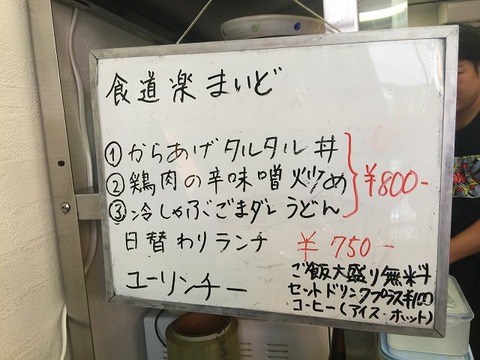 食道楽 まいど
① からあげ タルタル 丼
② 鶏肉の辛味噌炒め
③ 冷しゃぶごまダレうどん
¥800-
日替わりランチ ¥750-
ユーリンチー
ご飯大盛り無料
セットドリンクプラス¥100
コーヒー(アイス・ホット)